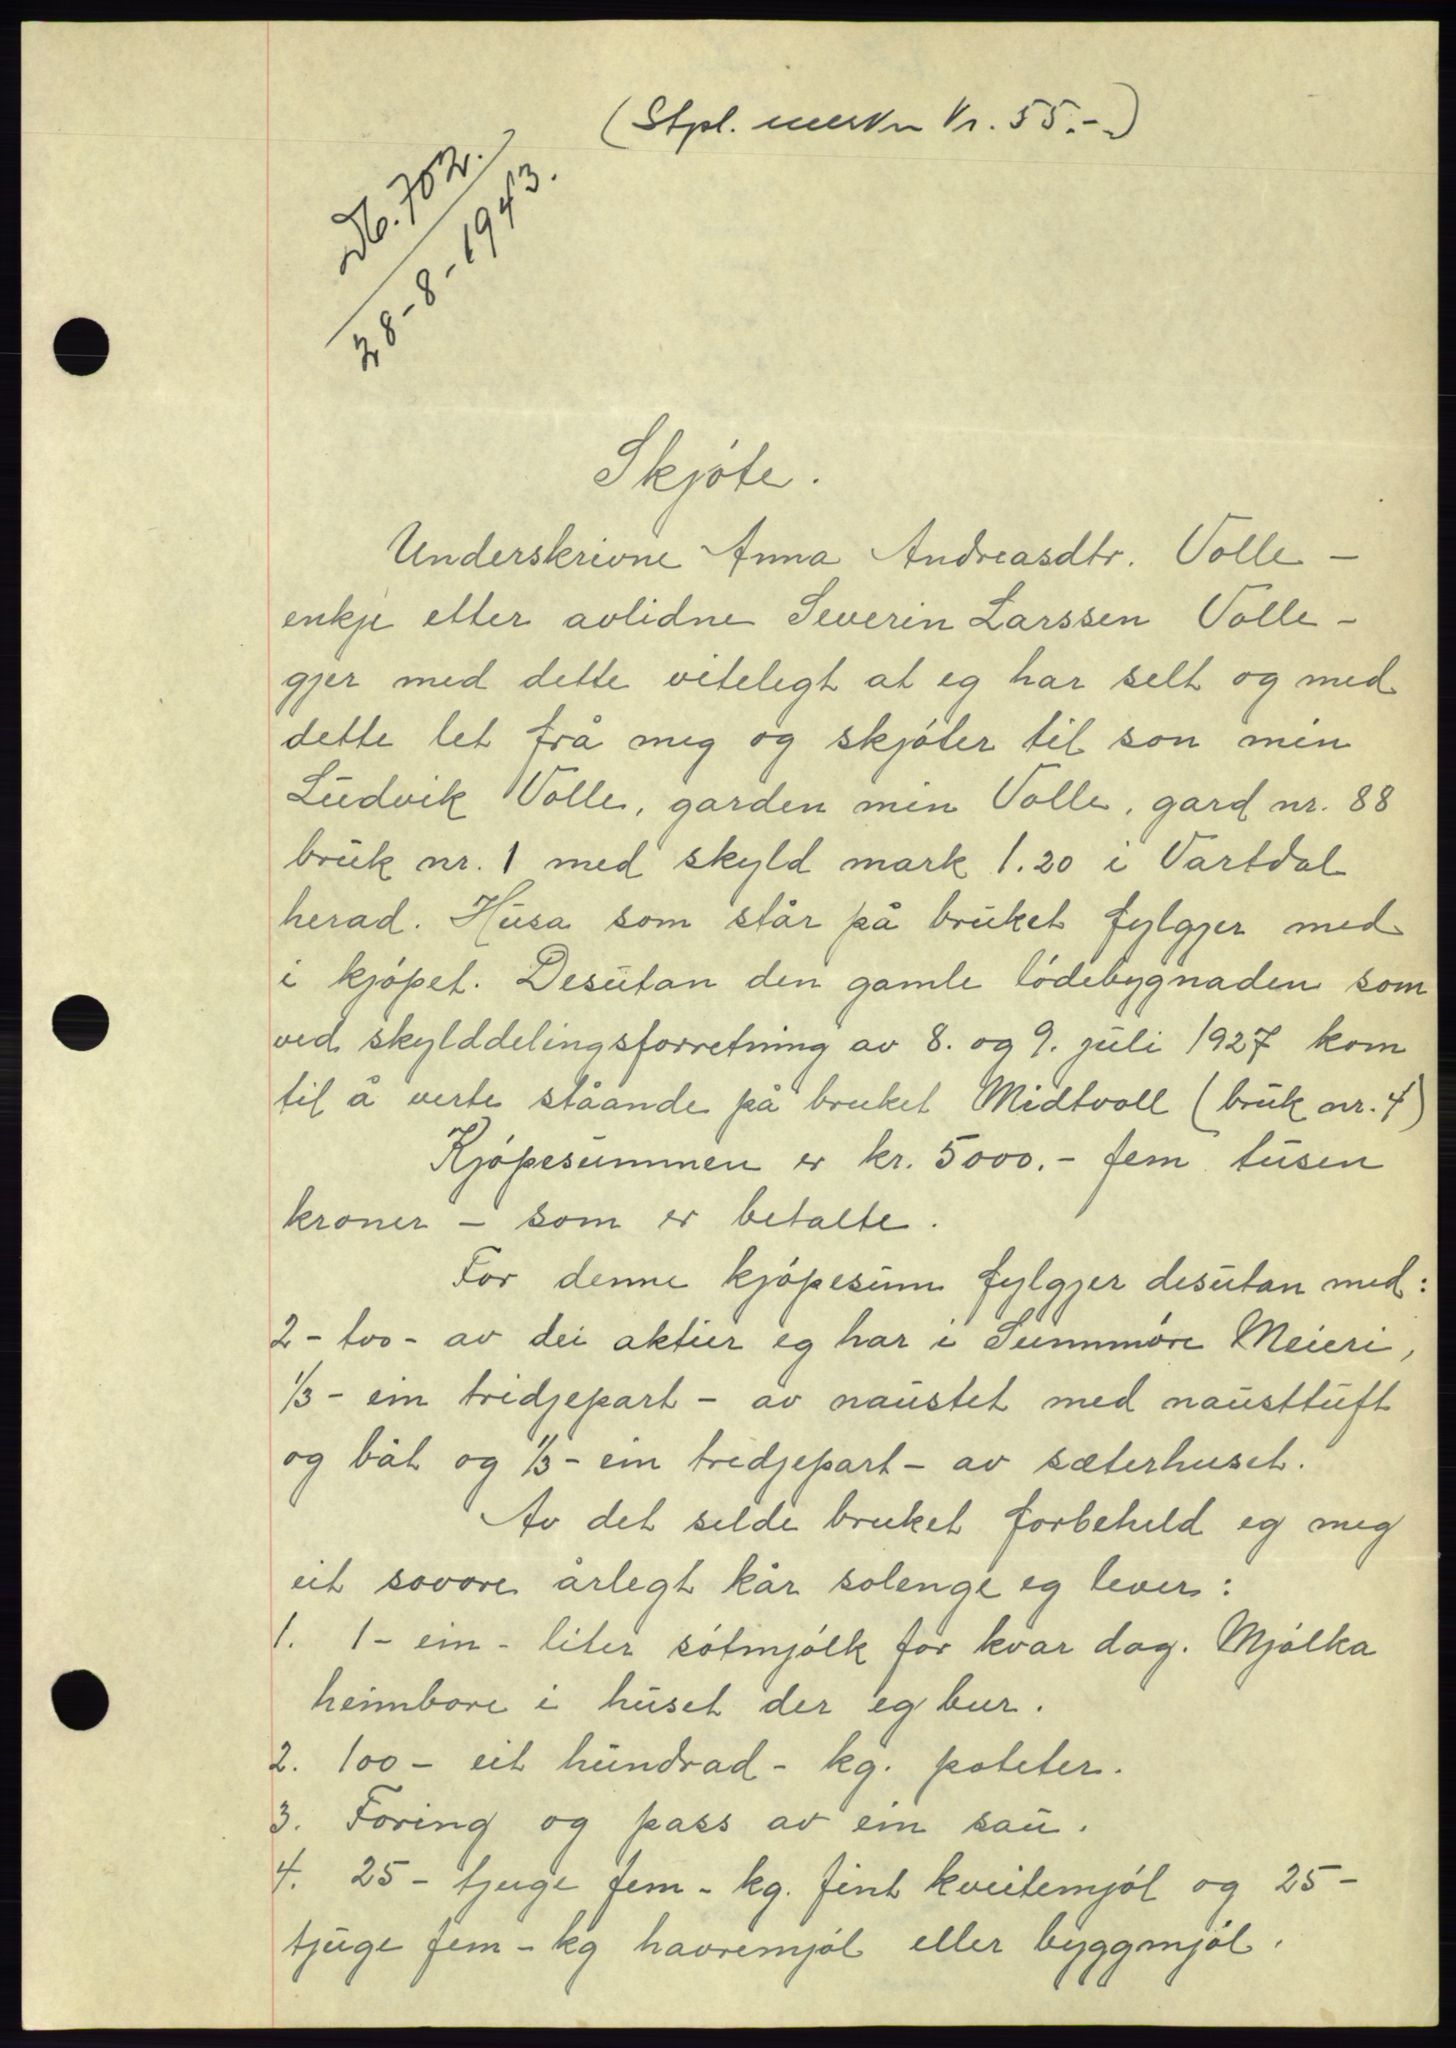 (Stpl. merke kr. 55.-.)
Db. 702.
28-8-1943.
Skjóte.
Underskrivne Anna Andreasdtr. Volle -
enkje etter avlidne Severin Larssen Volle -
gjer med dette vitelegt at eg har selt og med
dette let frå meg og skjóter til son min
Ludvik Volle, garden min Volle, gard nr. 88
bruk nr. 1 med skyld mark 1.20 i Vartdal
herad. Husa som står på bruket fylgjer med
i kjópet. Desutan den gamle lódebygnaden som
ved skylddelingsforretning av 8. og 9. juli 1927 kom
til å verte ståande på bruket Midtvoll (bruk nr. 4)
Kjópesummen er kr. 5000.- fem tusen
kroner - som er betalte.
For denne kjópesum fylgjer desutan med:
2 - tvo - av dei aktier eg har i Sunnmóre Meieri,
1/3 - ein tridjepart - av naustet med nausttuft
og båt og 1/3 - ein tredjepart - av sæterhuset.
Av det selde bruket forbeheld eg meg
eit sovore årlegt kår solenge eg lever:
1. 1 - ein - liter sótmjólk for kvar dag. Mjólka
heimbore i huset der eg bur.
2. 100 - eit hundrad - kg. poteter.
3. Foring og pass av ein sau.
4. 25 - tjuge fem - kg. fint kveitemjól og 25 -
tjuge fem - kg havremjól eller byggmjól.